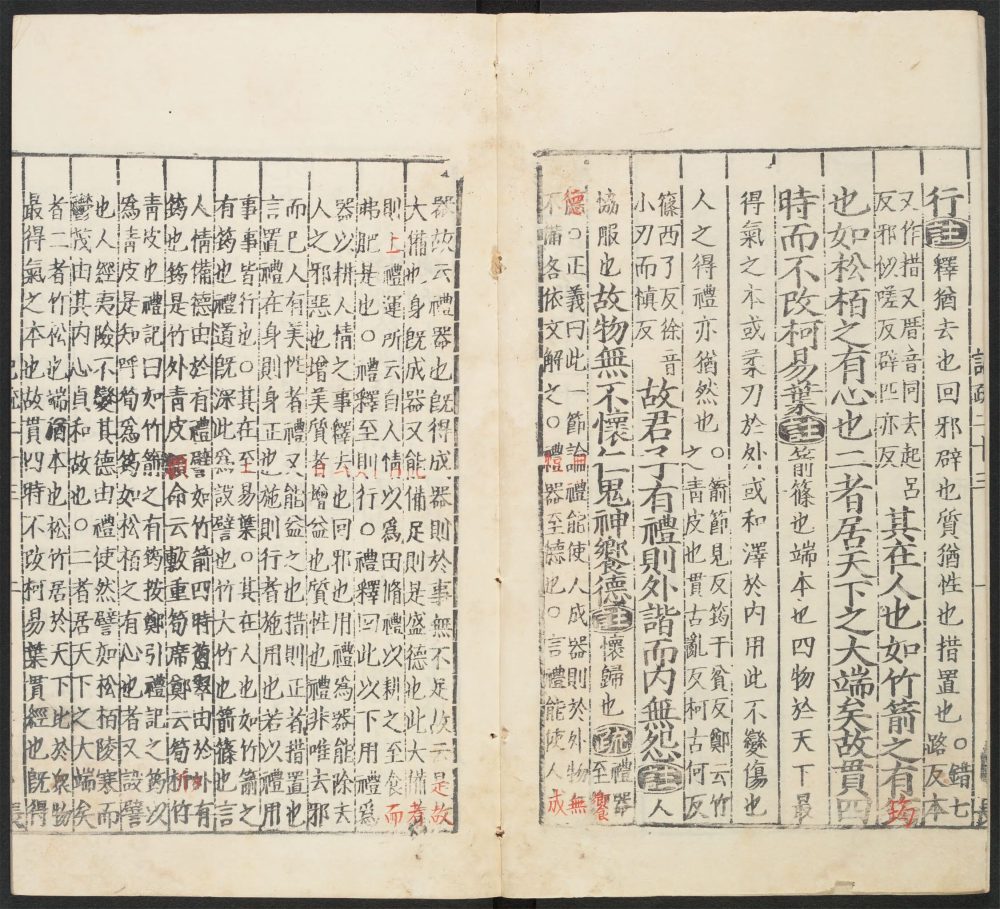 記疏二十三 一
行註釋猶去也回邪辟也質猶性也措置也○錯七路反本
又作措又厝音同去起呂反邪似嗟反辟匹亦反其在人也如竹箭之有筠
也如松栢之有心也二者居天下之大端矣故貫四
時而不改柯易葉註箭篠也端本也四物於天下最
得氣之本或柔刃於外或和澤於內用此不變傷也
人之得禮亦猶然也○箭節見反筠于貧反鄭云竹之青皮也貫古亂反柯古何反
篠西了反徐音小刃而慎反故君子有禮則外諧而內無怨註人
協服也故物無不懷仁鬼神饗德註懷歸也疏禮器至饗
德○正義曰此一節論禮能使人成器則於外物無
不備各依文解之○禮器至德也○言禮能使人成
器故云禮器也既得成器則於事無不足故云是故
大備也身既成器又能備足則是盛德也此大備者
則上禮運所云自人情以爲田脩禮以耕之至食而
弗肥是也○禮釋至則行○禮釋回此以下用禮爲
器以耕人情之事釋去也回邪也用禮爲器能除去
人之邪惡也增美質者增益也質性也禮非唯去邪
而已人有美性者禮又能益之也措則正者措置也
言置禮在身則身正也施則行者施用也若以禮用
事事皆行也○其在至易葉○其在人也如竹箭之
有筠也者禮道既深此爲設譬也竹大竹也箭篠也言
人情備德由於有禮譬如竹箭四時蔥翠由於外有
筠也筠是竹外青皮顧命云敷重筍席鄭云筍析竹
青皮也禮記曰如竹箭之有筠按鄭引禮記之筠以
爲青皮是知呼筠爲筍如松栢之有心也者又設譬
也人經夷險不變其德由禮使然譬如松栢陵寒而
鬱茂由其內心貞和故也○二者居天下之大端矣
者二者竹松也端猶本也松竹居於天下比於眾物
最得氣之本也故貫四時不改柯易葉貫經也既得